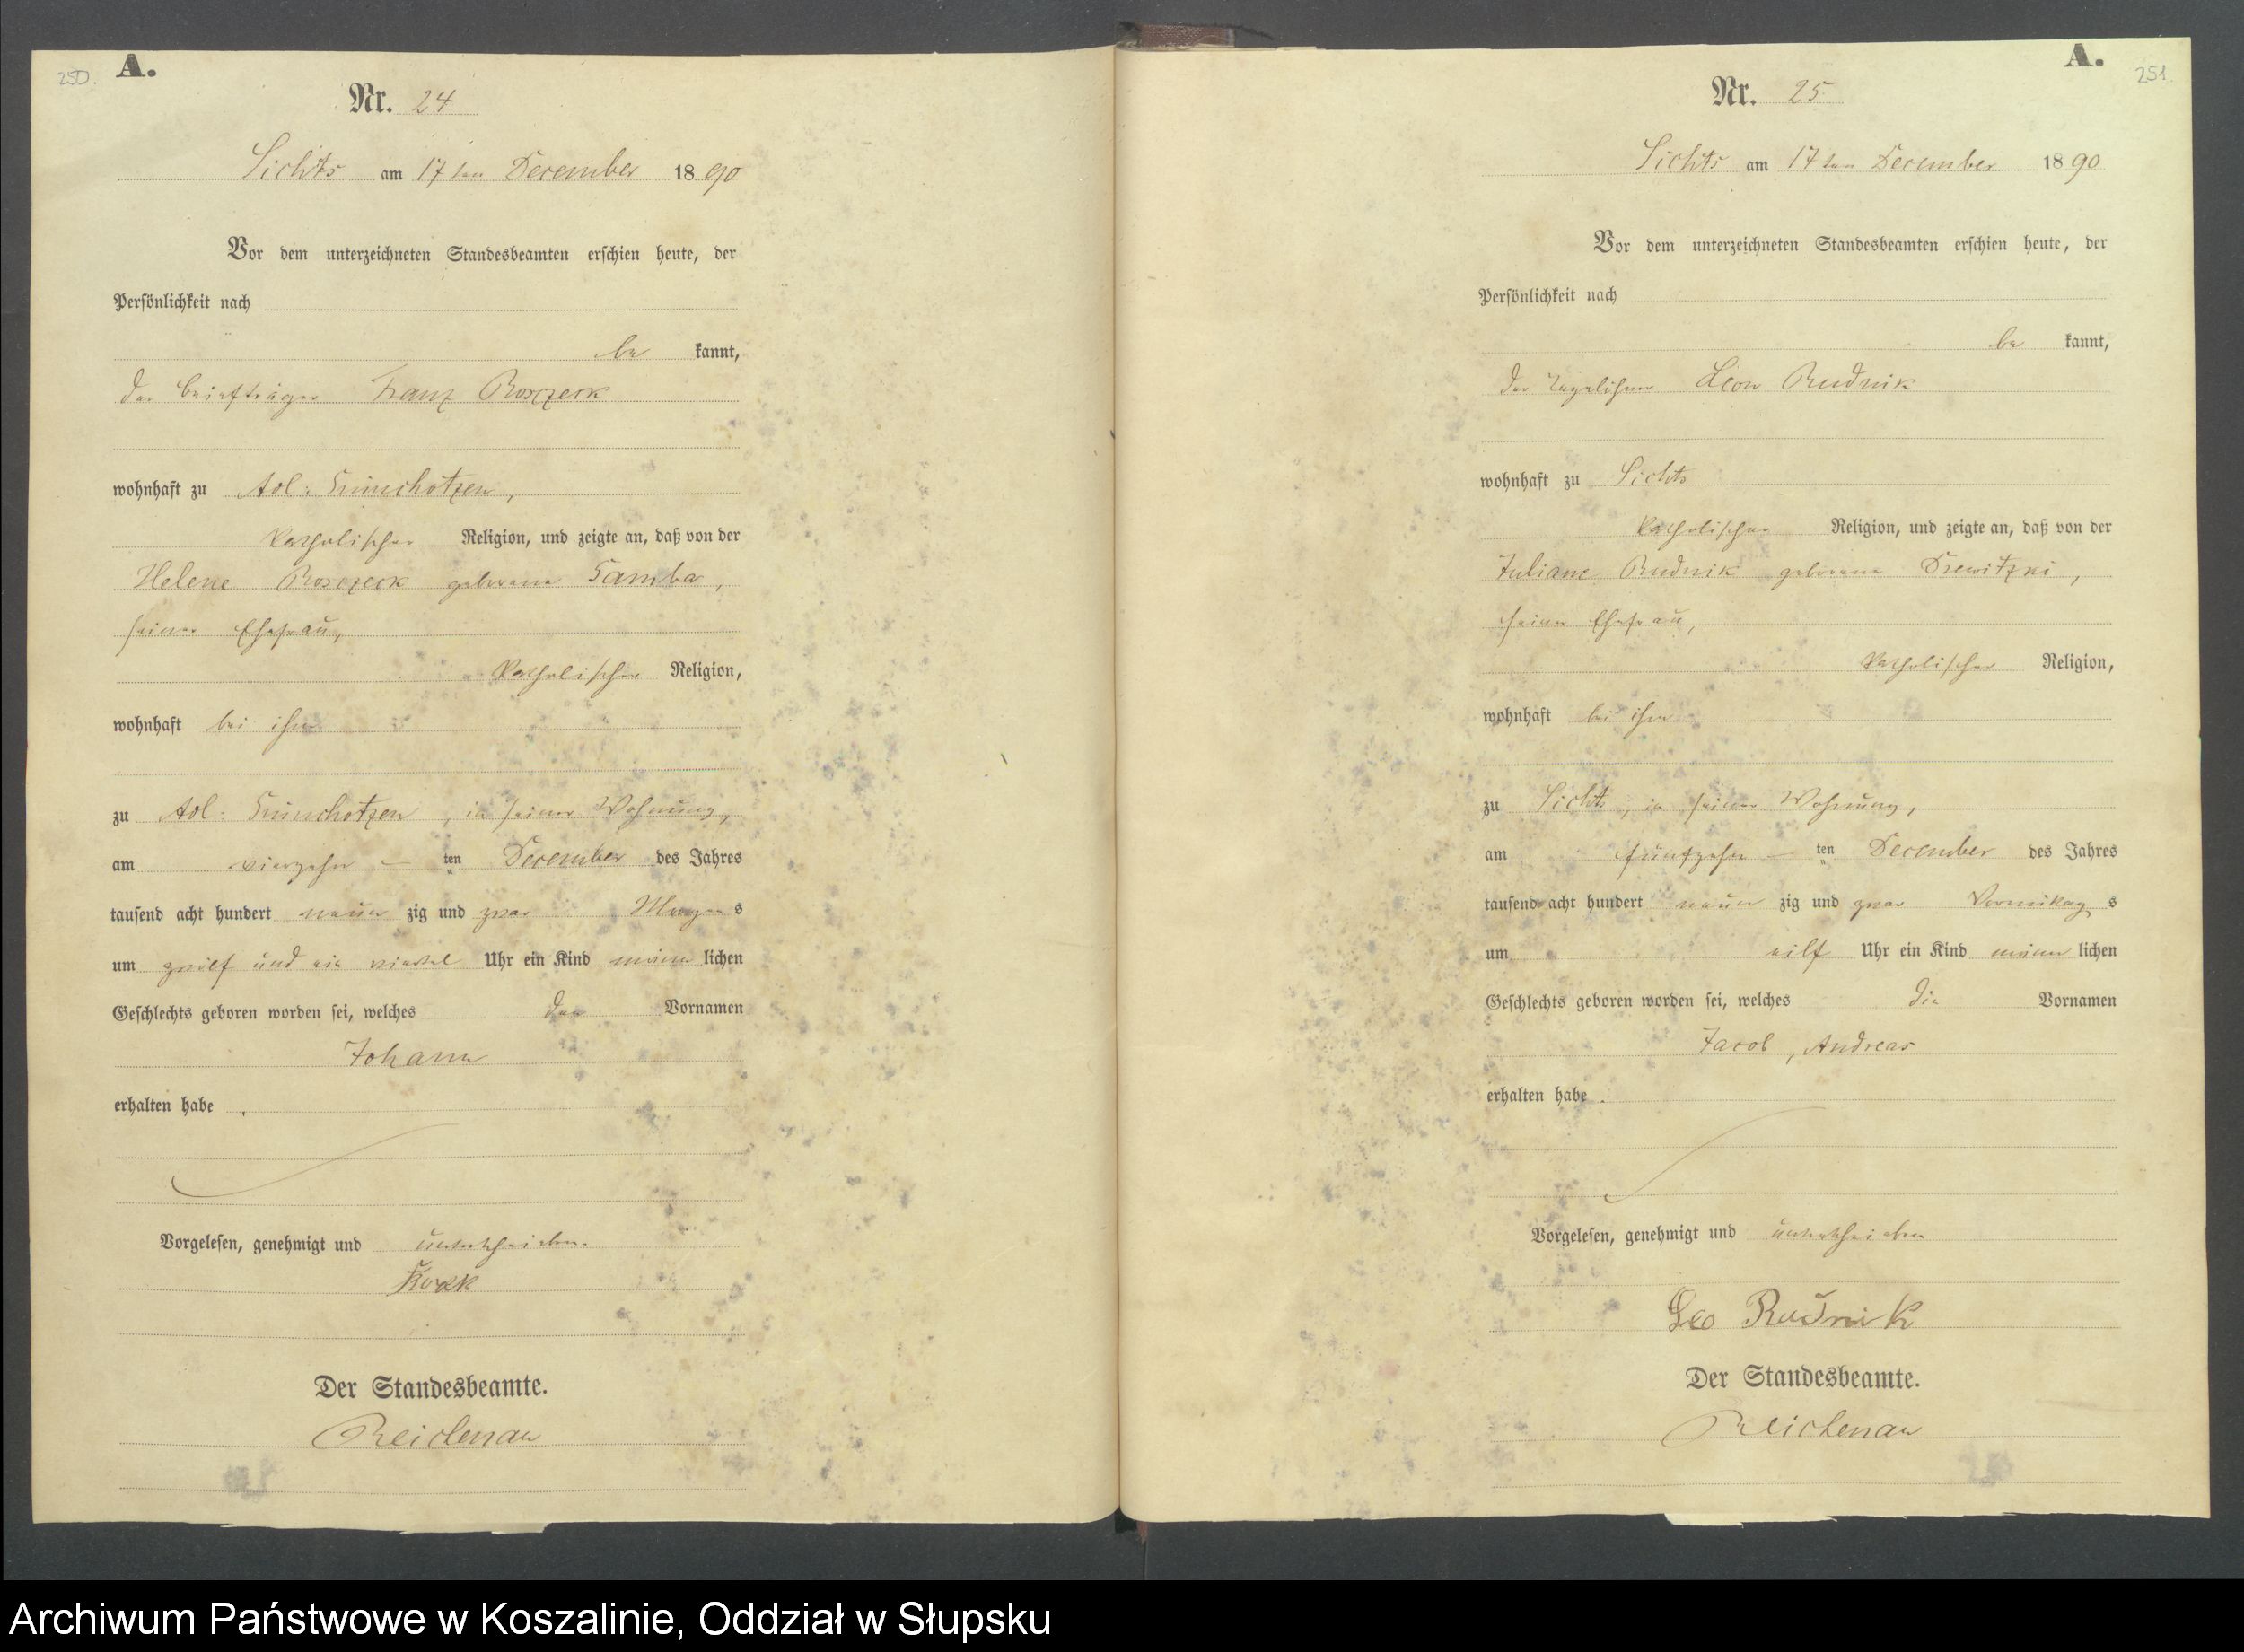 250.
A.
Nr. 24
Lichts am 17ten December 1890
Vor dem unterzeichneten Standesbeamten erschien heute, der
Persönlichkeit nach
be kannt,
der Briefträger Franz
wohnhaft zu Adl:
katholischer Religion, und zeigte an, daß von der
Helene geborene
seiner Ehefrau,
katholischer Religion,
wohnhaft bei ihm
zu Adl: , in seiner Wohnung,
am vierzehn – ten December des Jahres
tausend acht hundert neun zig und zwar Morgens
um zwölf und ein viertel Uhr ein Kind männ lichen
Geschlechts geboren worden sei, welches den Vornamen
Johann
erhalten habe .
Vorgelesen, genehmigt und unterschrieben.
Der Standesbeamte.
Reichenau
A.
251.
Nr. 25
Lichts am 17ten December 1890
Vor dem unterzeichneten Standesbeamten erschien heute, der
Persönlichkeit nach
be kannt,
der Tagelöhner Leon Rudnik
wohnhaft zu Lichts
katholischer Religion, und zeigte an, daß von der
Juliane Rudnik geborene ,
seiner Ehefrau,
katholischer Religion,
wohnhaft bei ihm
zu Lichts, in seiner Wohnung,
am fünfzehn – ten December des Jahres
tausend acht hundert neun zig und zwar Vormittags
um eilf Uhr ein Kind männ lichen
Geschlechts geboren worden sei, welches die Vornamen
Jacob, Andreas
erhalten habe .
Vorgelesen, genehmigt und unterschrieben
Leo Rudnik
Der Standesbeamte.
Reichenau
Archiwum Państwowe w Koszalinie, Oddział w Słupsku